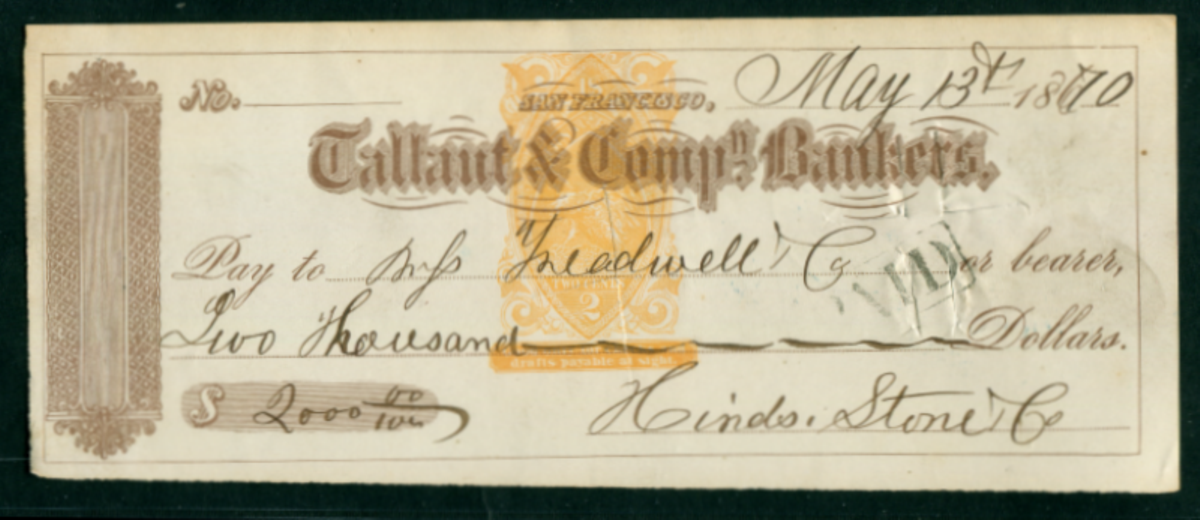 No. SAN FRANCISCO, May 13th 1870
Tallant & Compy. Bankers.
Pay to Treadwell & Co or bearer,
TWO CENTS
2
Two Thousand Dollars.
drafts payable at sight
$ 2000 00/100
Hinds. Stone & Co